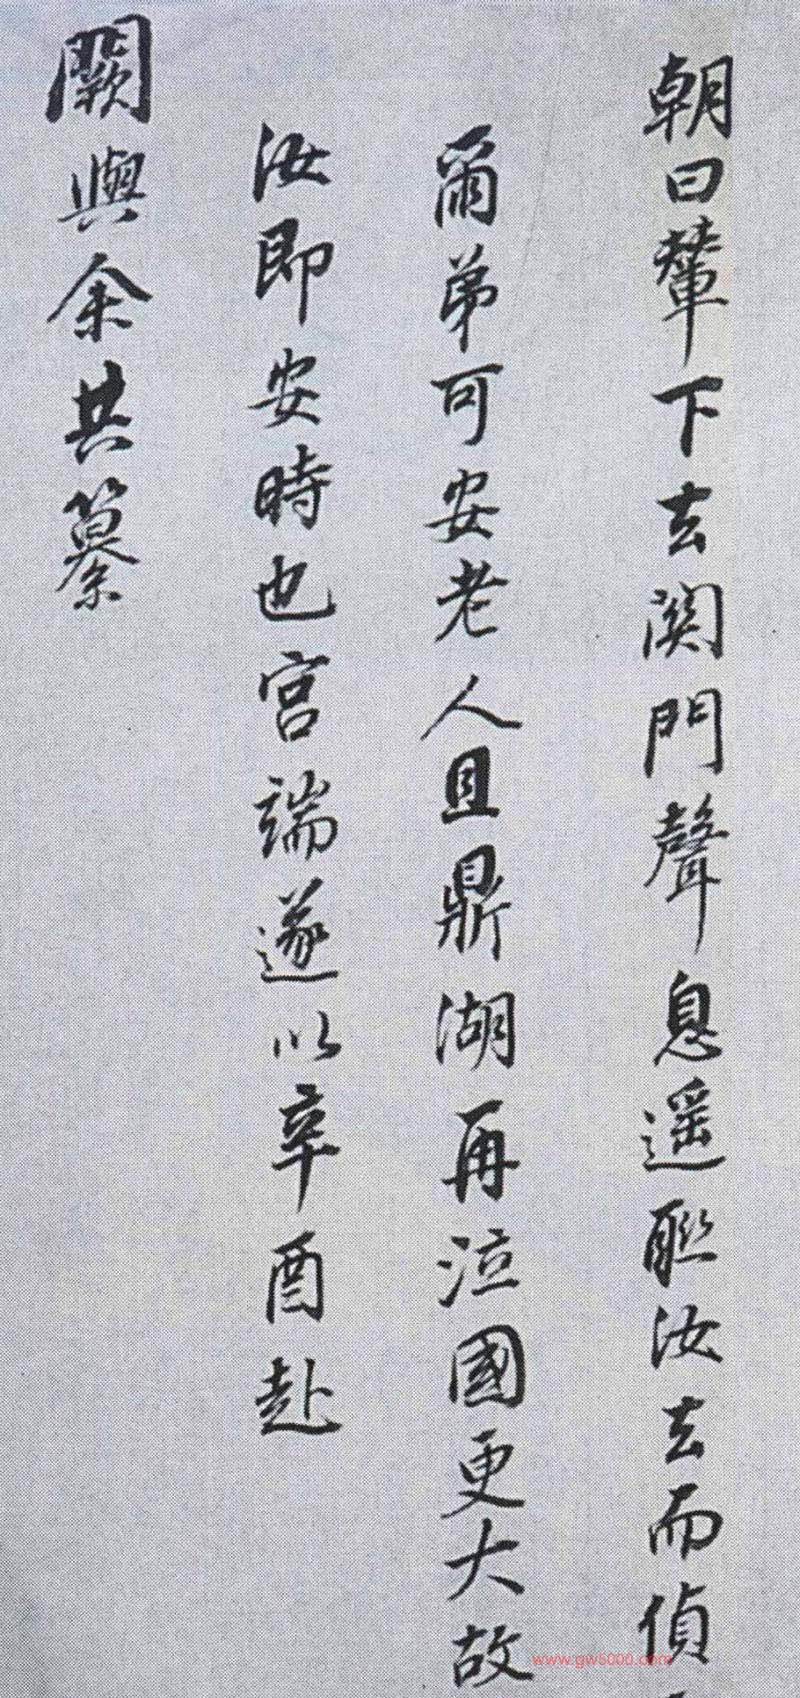 朝曰輦下去関門聲息遥聮汝去而偵
爾弟可安老人且鼎湖再泣國更大故
汝即安時也宮端遂以辛酉赴
闕與余共纂
www.gw5000.com